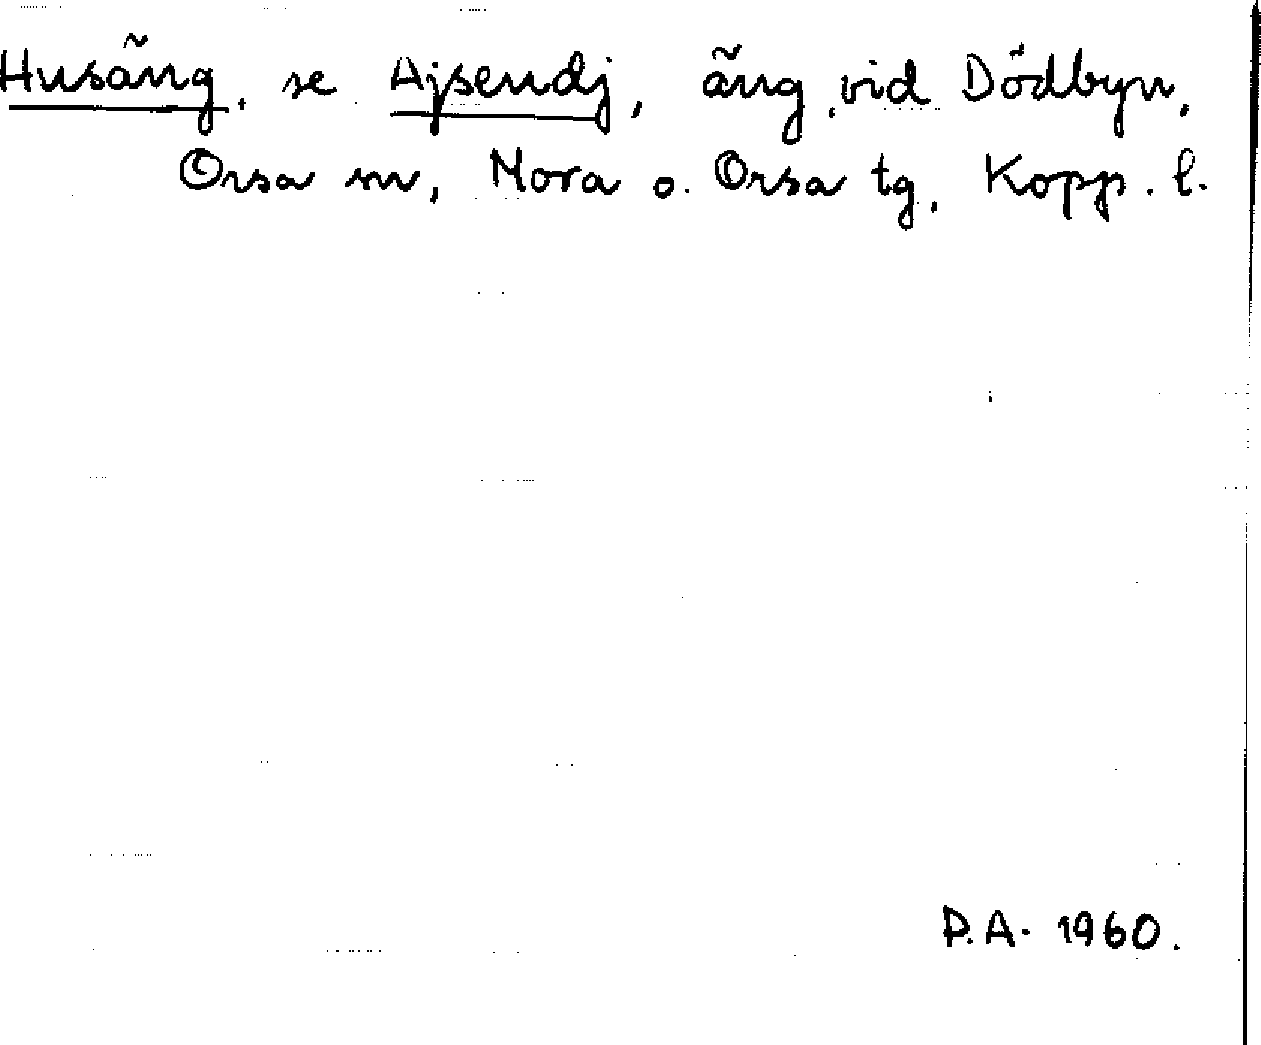 Husäng, se Ajsendj, äng vid Dödbyn,
Orsa sn, Mora o. Orsa tg, Kopp. l.
P.A. 1960.